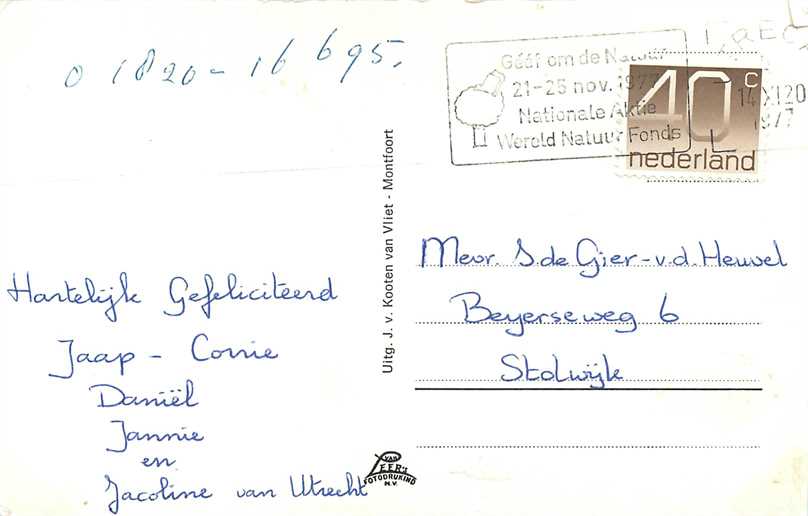 0 1820 - 16 695.
Gééf om de Natuur
21-25 nov. 1977
Nationale Aktie
Wereld Natuur Fonds
40 c
nederland
14 XI 20
1977
Uitg. J. v. Kooten van Vliet - Montfoort
Hartelijk Gefeliciteerd
Jaap - Corrie
Daniël
Jannie
en
Jacoline van Utrecht
Mevr. S. de Gier - v.d. Heuvel
Beyerseweg 6
Stolwijk
VAN
LEER's
FOTODRUKIND
N.V.